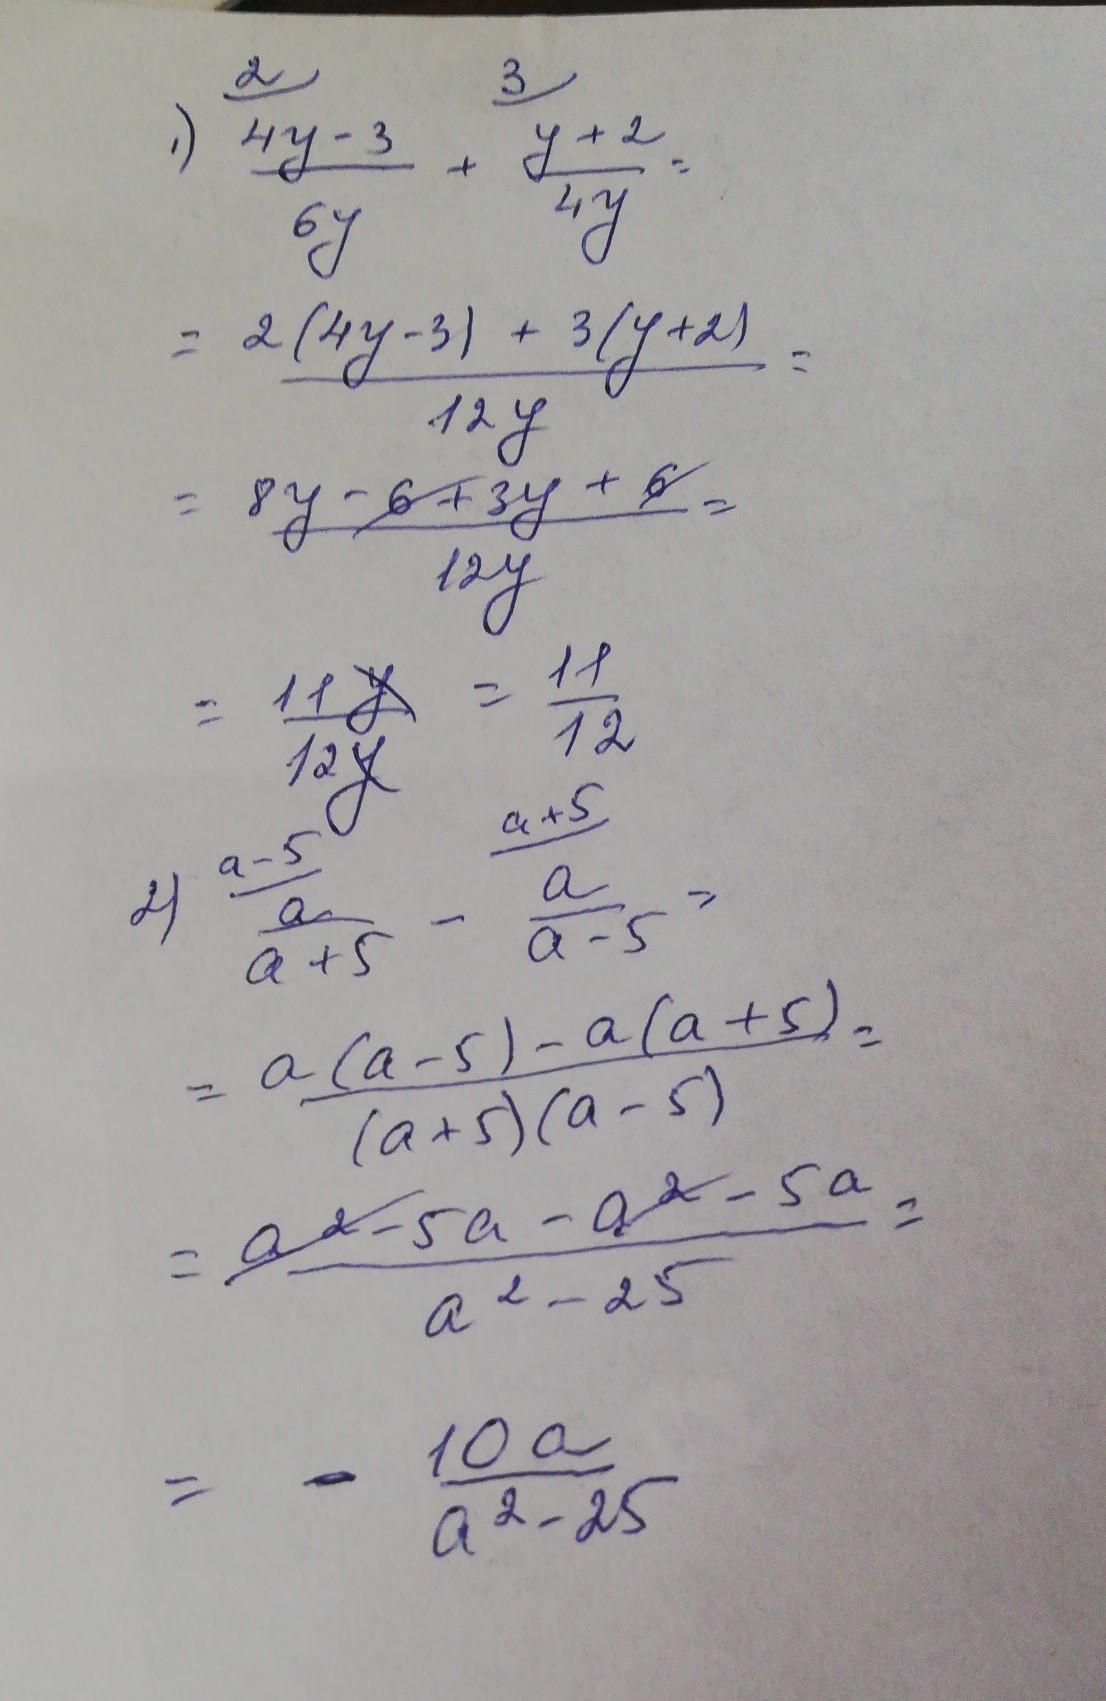 2 3
1) 4y-3/6y + y+2/4y =
= 2(4y-3) + 3(y+2)/12y =
= 8y - 6 + 3y + 6/12y =
= 11y/12y = 11/12
a-5 a+5
2) a/a+5 - a/a-5 =
= a(a-5) - a(a+5)/(a+5)(a-5) =
= a² - 5a - a² - 5a/a² - 25 =
= - 10a/a² - 25